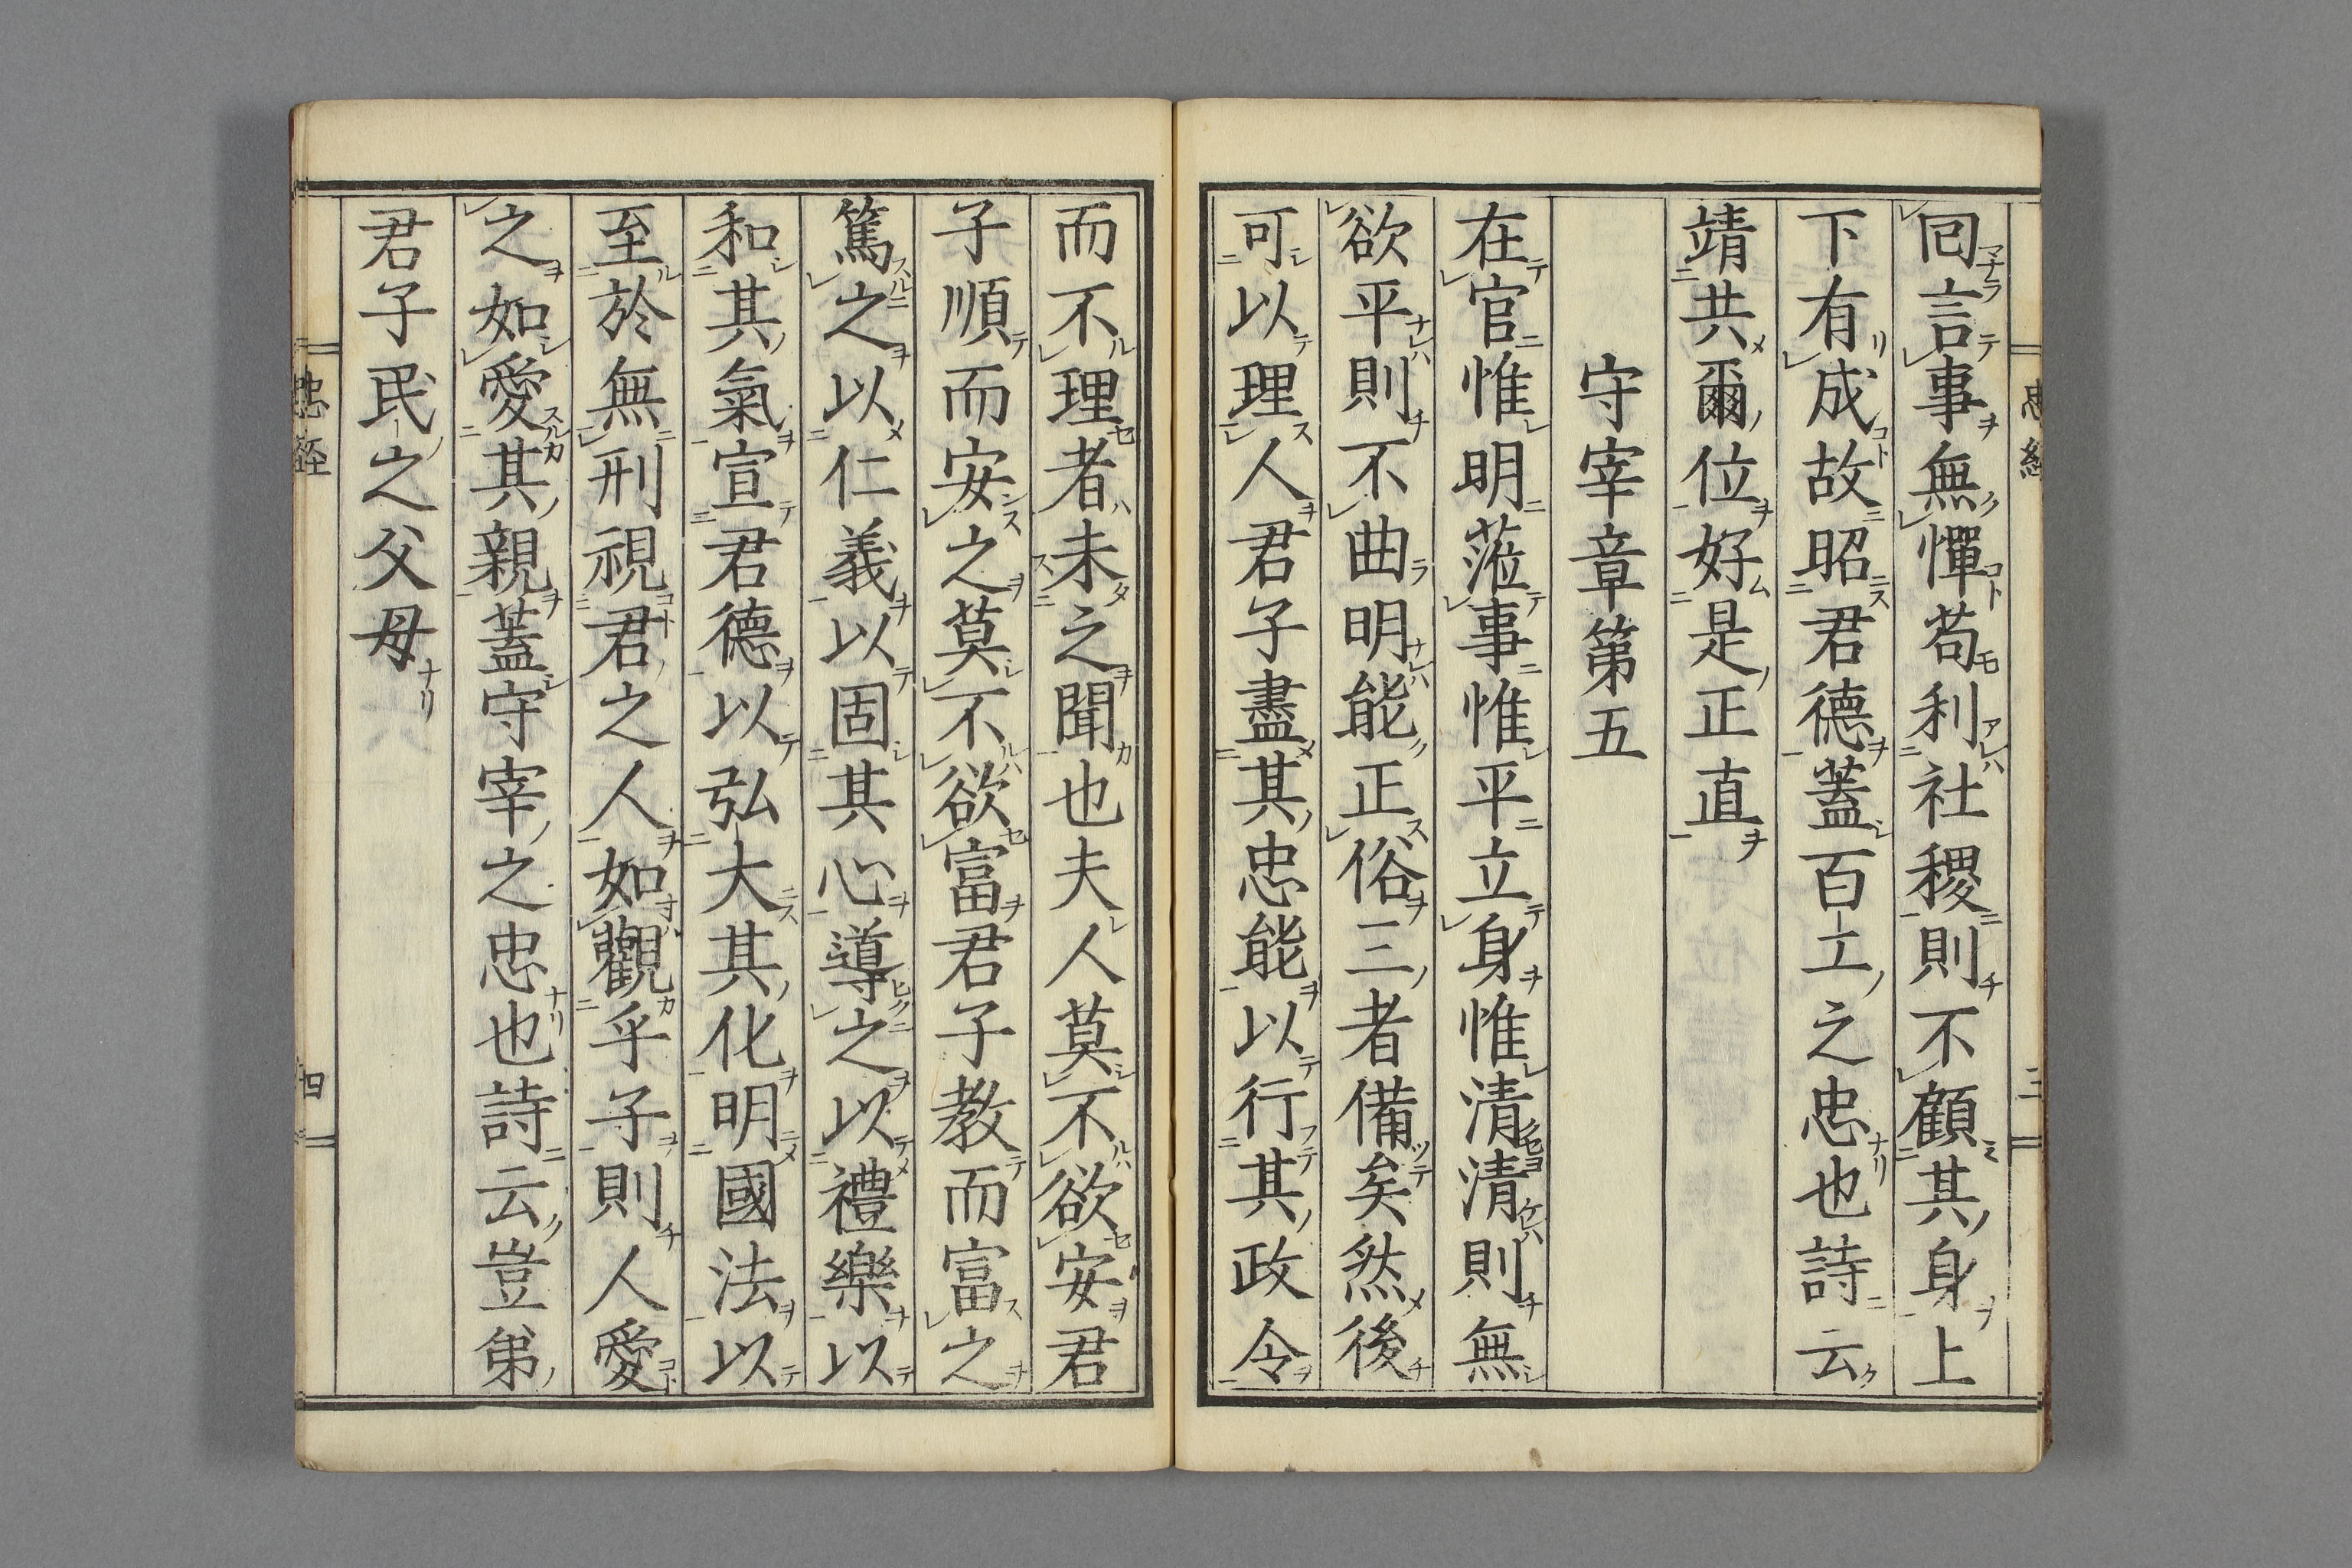 囘言事無憚苟利社稷則不顧其身上
下有成故昭君德蓋百工之忠也詩云
靖共爾位好是正直
守宰章第五
在官惟明蒞事惟平立身惟清清則無
欲平則不曲明能正俗三者備矣然後
可以理人君子盡其忠能以行其政令
而不理者未之聞也夫人莫不欲安君
子順而安之莫不欲富君子教而富之
篤之以仁義以固其心導之以禮樂以
和其氣宣君德以弘大其化明國法以
至於無刑視君之人如觀乎子則人愛
之如愛其親蓋守宰之忠也詩云豈弟
君子民之父母
忠經
四